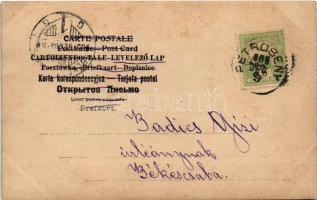 CARTE POSTALE
Postkarte-Post Card
CARTOLINA POSTALE-LEVELEZŐ-LAP
Pocztówka-Briefkaart-Dopisnice
Karte korespondencyjna-Tarjeta postal
Открытое Письмо
Brefkort
PETROSENY
Badics Gizi
úrleánynak
Békéscsaba.